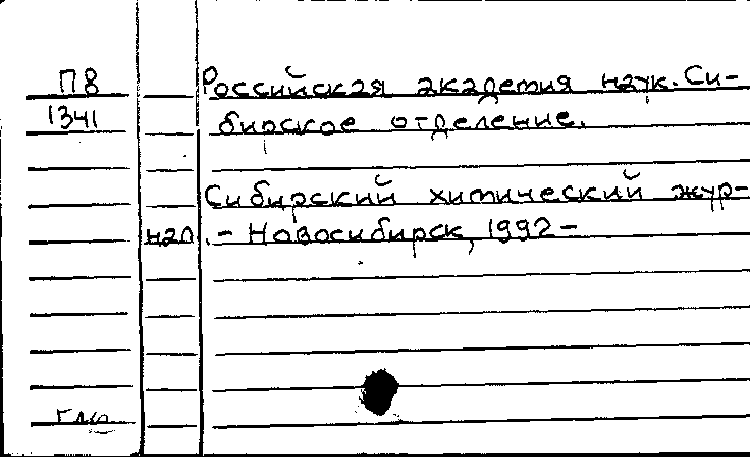 П8 Российская академия наук. Си-
1341 бирское отделение.
Сибирский химический жур-
нал. - Новосибирск, 1992 -